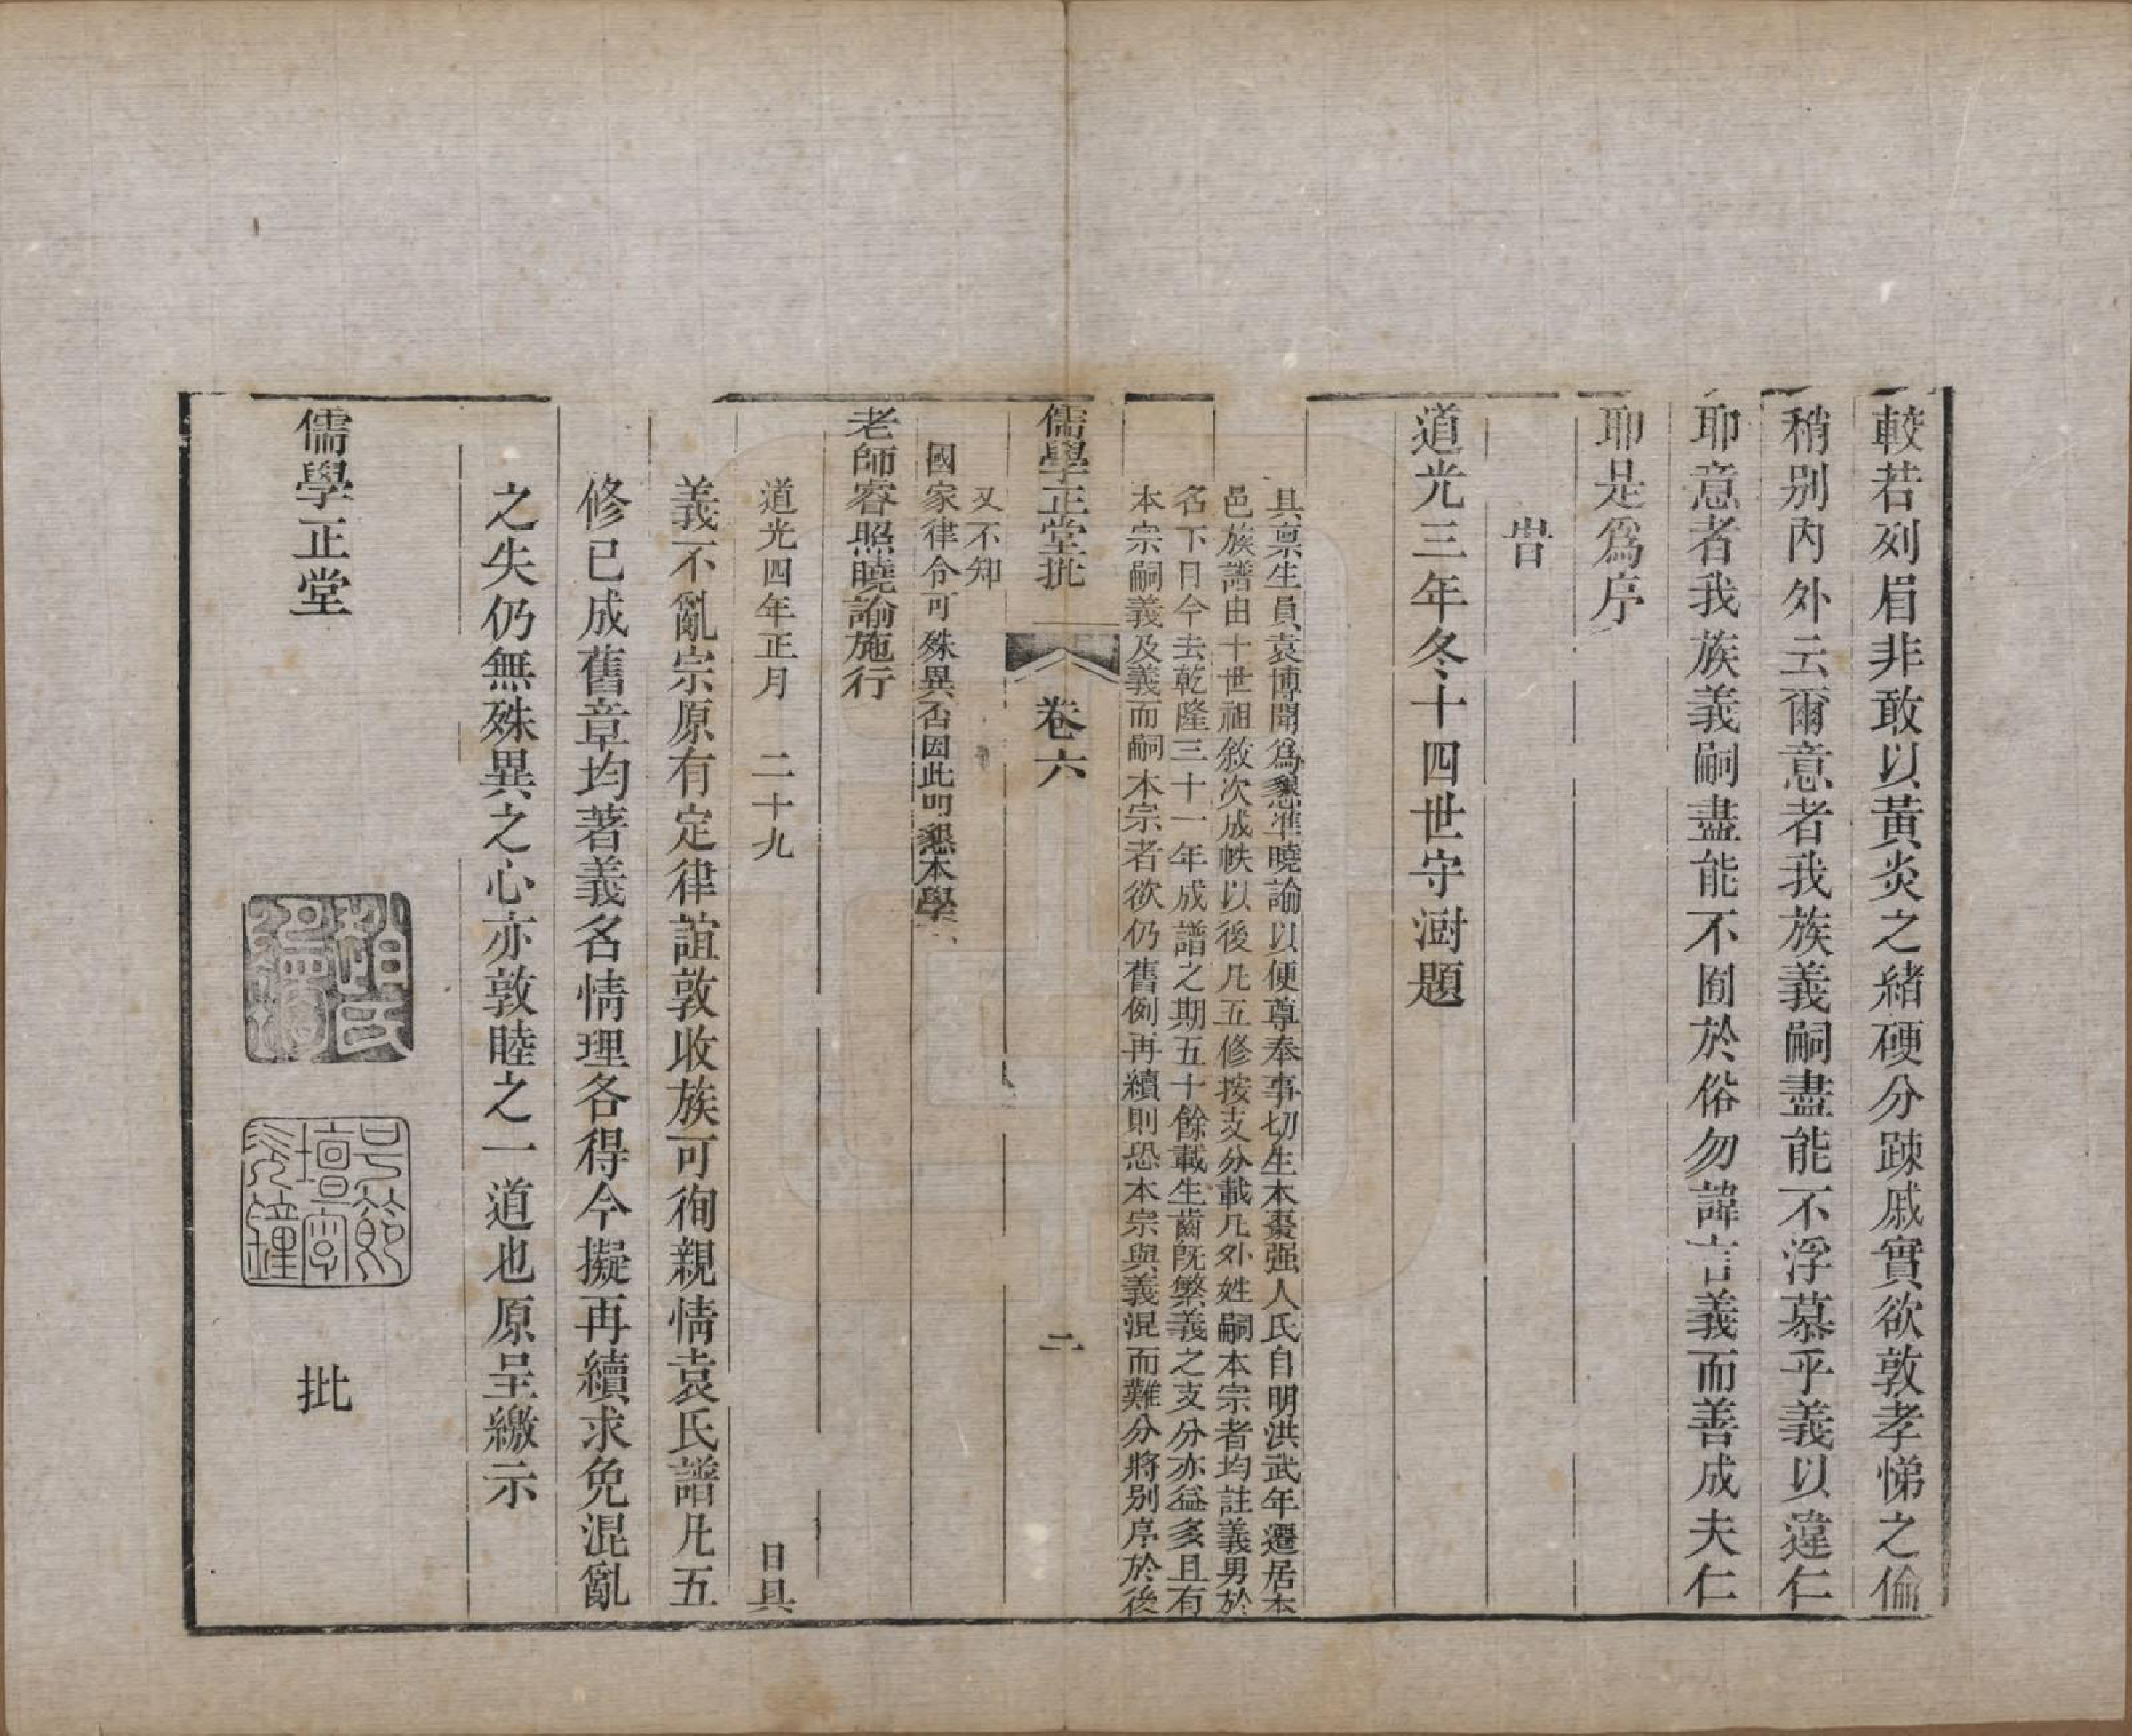 較若列眉非敢以黃炎之緒硬分踈戚實欲敦孝悌之倫
稍别內外云爾意者我族義嗣盡能不浮慕乎義以違仁
耶意者我族義嗣盡能不囿於俗勿諱言義而善成夫仁
耶是爲序
旹
道光三年冬十四世守澍題
具禀生員袁博聞爲懇准曉諭以便尊奉事切生本棗强人氏自明洪武年遷居本
邑族譜由十世祖敘次成帙以後凡五修按支分載凡外姓嗣本宗者均註義男於
名下目今去乾隆三十一年成譜之期五十餘載生齒旣繁義之支分亦益多且有
本宗嗣義及義而嗣本宗者欲仍舊例再續則恐本宗與義混而難分將别序於後
儒學正堂批
卷六
二
又不知
國家律令可殊異否因此叩懇本學
老師睿照曉諭施行
道光四年正月 二十九 日具
義不亂宗原有定律誼敦收族可徇親情袁氏譜凡五
修已成舊章均著義名情理各得今擬再續求免混亂
之失仍無殊異之心亦敦睦之一道也原呈繳示
儒學正堂 批